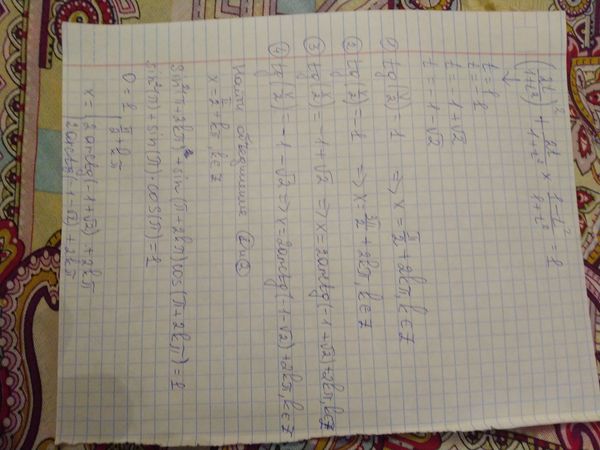 (2t/(1+t²))² + 2t/(1+t²) × (1-t²)/(1+t²) = 1
↓
t = 1
t = -1
t = -1+√2
t = -1-√2
① tg(x/2) = 1 ⇒ x = π/2 + 2kπ, k∈Z
② tg(x/2) = -1 ⇒ x = 3π/2 + 2kπ, k∈Z
③ tg(x/2) = -1+√2 ⇒ x = 2arctg(-1+√2) + 2kπ, k∈Z
④ tg(x/2) = -1-√2 ⇒ x = 2arctg(-1-√2) + 2kπ, k∈Z
x = π/2 + kπ, k∈Z
sin²(π+2kπ) + sin(π+2kπ)cos(π+2kπ) = 1
sin²(π) + sin(π) cos(π) = 1
0 = 1
x =
2arctg(-1+√2) + 2kπ
2arctg(-1-√2) + 2kπ